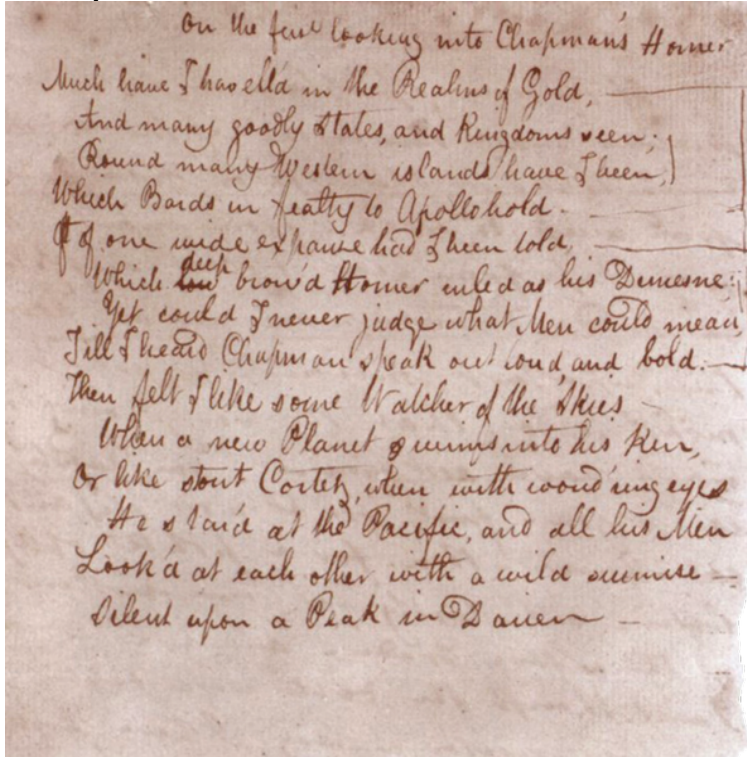 On the first looking into Chapman's Homer
Much have I travell'd in the Realms of Gold,
And many goodly States, and Kingdoms seen;
Round many Western islands have I been,
Which Bards in fealty to Apollo hold.
Of one wide expanse had I been told,
Which deep brow'd Homer ruled as his Demesne:
Yet could I never judge what Men could mean,
Till I heard Chapman speak out loud, and bold.
Then felt I like some Watcher of the Skies
When a new Planet swims into his Ken,
Or like stout Cortez, when with wond'ring eyes
He star'd at the Pacific, and all his Men
Look'd at each other with a wild surmise
Silent upon a Peak in Darien